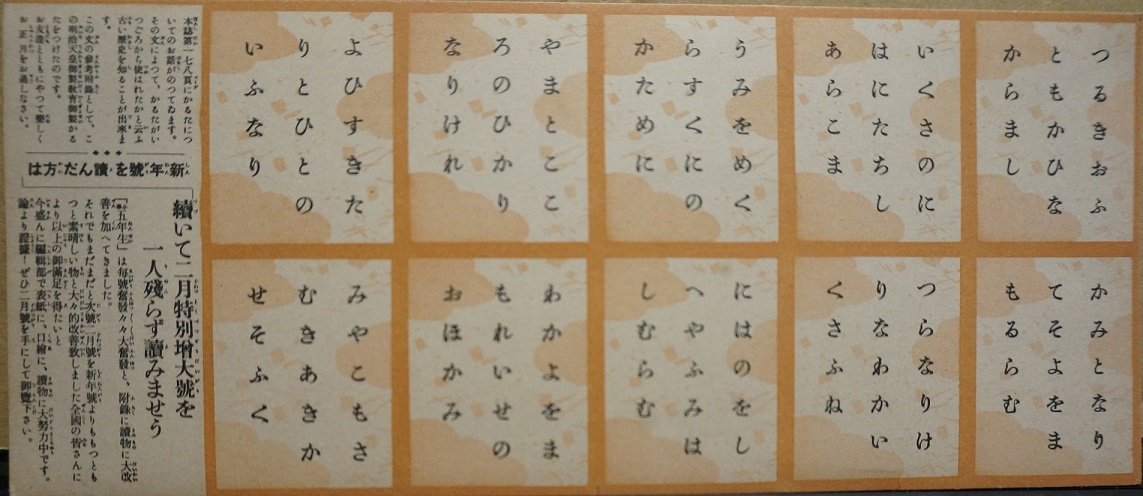 つるきおふ
ともかひな
からまし
いくさのに
はにたちし
あらこま
うみをめく
らすくにの
かために
やまとここ
ろのひかり
なりけれ
よひすきた
りとひとの
いふなり
かみとなり
てそよをま
もるらむ
つらなりけ
りなわかい
くさふね
にはのをし
へやふみは
しむらむ
わかよをま
もれいせの
おほかみ
みやこもさ
むきあきか
せそふく
本誌第一七八頁にかるたにつ
いてのお話がのつてゐます。
その文によつて、かるたがい
つごろから使はれたかと云ふ
古い歴史を知ることが出來ま
す。
この文の參考附錄として、こ
の明治天皇御製敎育御製かる
たをつけたのです。
お友達とともにやつて樂しく
お正月をお過しなさい。
新年號を讀んだ方は
續いて二月特別增大號を
一人殘らず讀みませう
『十五年生』は每號奮發々々大奮發と、附錄に讀物に大改
善を加へてきました。
それでもまだまだと次號二月號を新年號よりももつとも
つと素晴しい物と大々的改善致しました全國の皆さんに
より以上の御滿足を得たいと
今盛んに編輯部で表紙に、口繪に、讀物に大努力中です。
論より證據！ぜひ二月號を手にして御覽下さい。